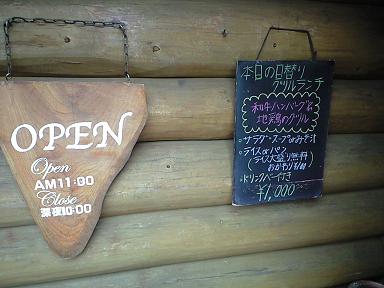 OPEN
Open
AM11:00
Close
深夜10:00
本日の日替り
グリルランチ
和牛ハンバーグ&
地鶏のグリル
・サラダ・スープorみそ汁
・ライスorパン
(ライス大盛り無料
おかわり
・ドリンクバー付き
¥1,000